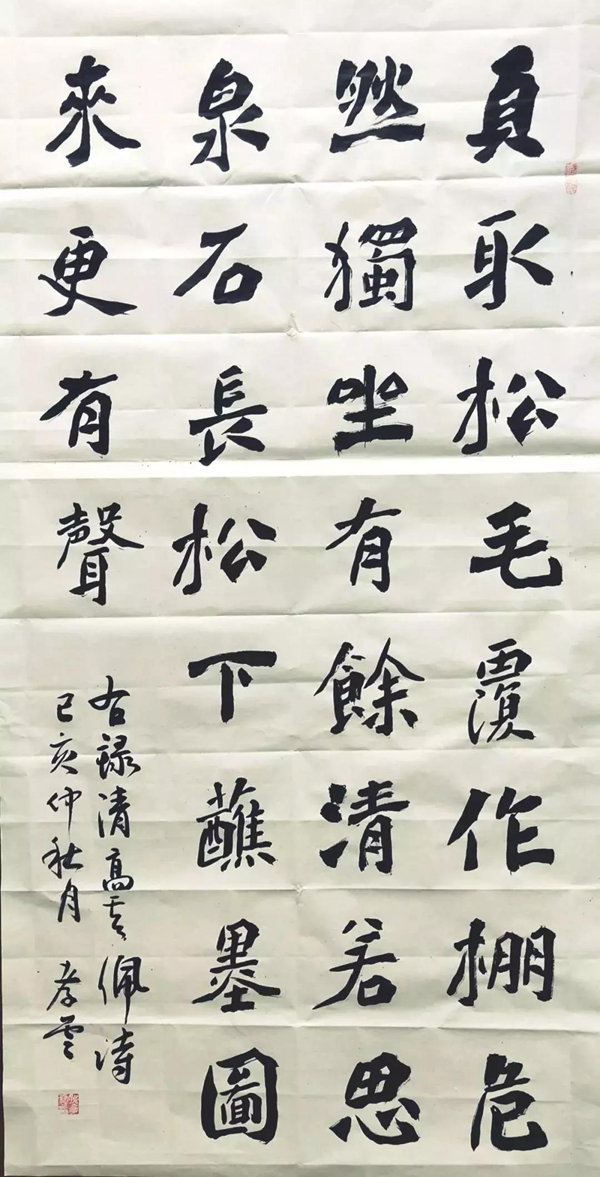 取松毛覆作棚危
然獨坐有餘清若思
泉石長松下蘸墨圖
來更有聲
右録清高其佩詩
己亥仲秋月 孝雲